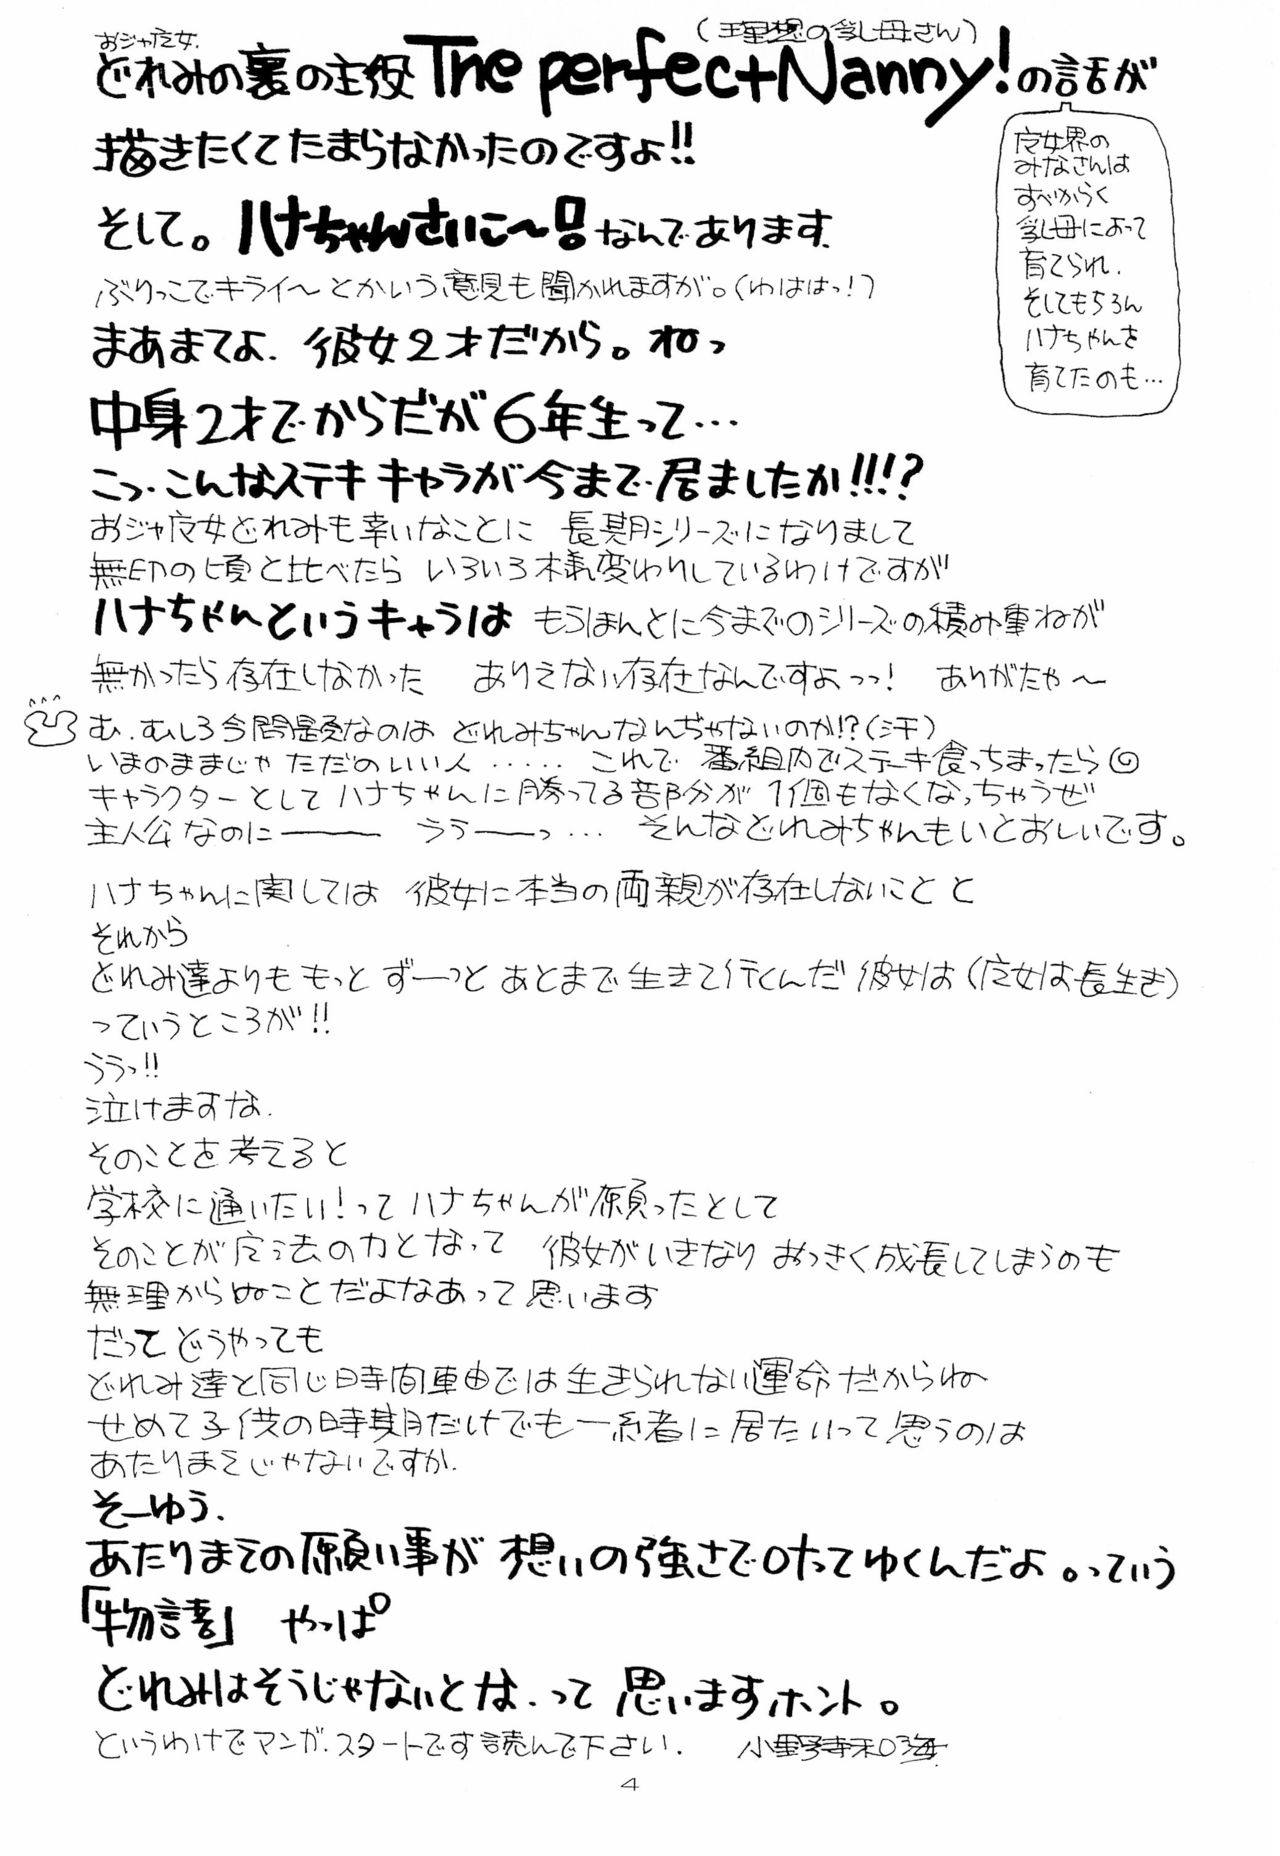 おジャ魔女
(理想の乳母さん)
どれみの裏の主役The perfect Nanny!の話が
描きたくてたまらなかったのですよ!!
魔女界の
みなさんは
すべからく
乳母によって
育てられ.
そしてもちろん
ハナちゃんを
育てたのも…
そして。ハナちゃんさいこ〜!なんであります.
ぶりっこでキライ〜とかいう意見も聞かれますが。(わははっ!)
まあまてよ. 彼女2才だから。ねっ
中身2才でからだが6年生って…
こっ.こんなステキキャラが今まで居ましたか!!!?
おジャ魔女どれみも幸いなことに 長期シリーズになりまして
無印の頃と比べたら いろいろ様変わりしているわけですが
ハナちゃんというキャラは もうほんとに今までのシリーズの積み重ねが
無かったら存在しなかった ありえない存在なんですよっっ! ありがたや〜
む.むしろ今問題なのは どれみちゃんなんぢゃないのか!?(汗)
いまのままじゃ ただのいい人…… これで 番組内でステーキ食っちまったら
キャラクターとしてハナちゃんに勝ってる部分が 1個もなくなっちゃうぜ
主人公なのに―― ううーっ… そんなどれみちゃんもいとおしいです。
ハナちゃんに関しては 彼女に本当の両親が存在しないことと
それから
どれみ達よりももっと ずーっと あとまで生きて行くんだ彼女は(魔女は長生き)
っていうところが!!
ううっ!!
泣けますな.
そのことを考えると
学校に通いたい!ってハナちゃんが願ったとして
そのことが魔法の力となって 彼女がいきなりおっきく成長してしまうのも
無理からぬことだよなあって思います
だってどうやっても
どれみ達と同じ時間軸では生きられない運命だからねー
せめて子供の時期だけでも一緒に居たいって思うのは
あたりまえじゃないですか.
そーゆう.
あたりまえの願い事が 想いの強さで叶ってゆくんだよ。っていう
「物語」 やっぱ
どれみはそうじゃないとな.って 思いますホント。
というわけでマンガ.スタートです読んで下さい. 小野寺和海
4